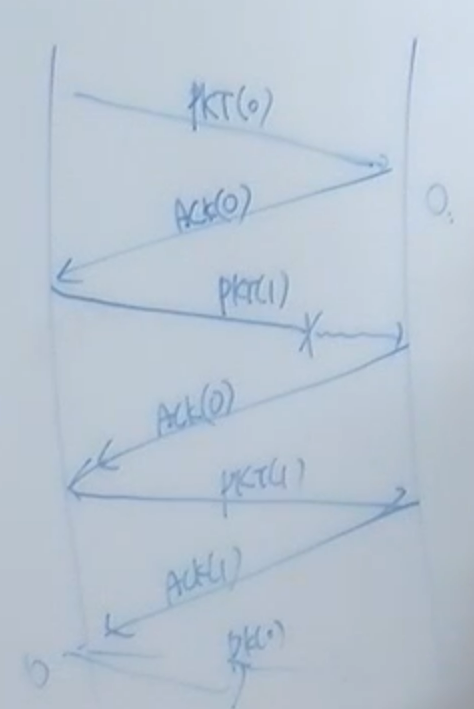 PKT(0)
ACK(0)
0
PKT(1)
ACK(0)
PKT(1)
ACK(1)
0